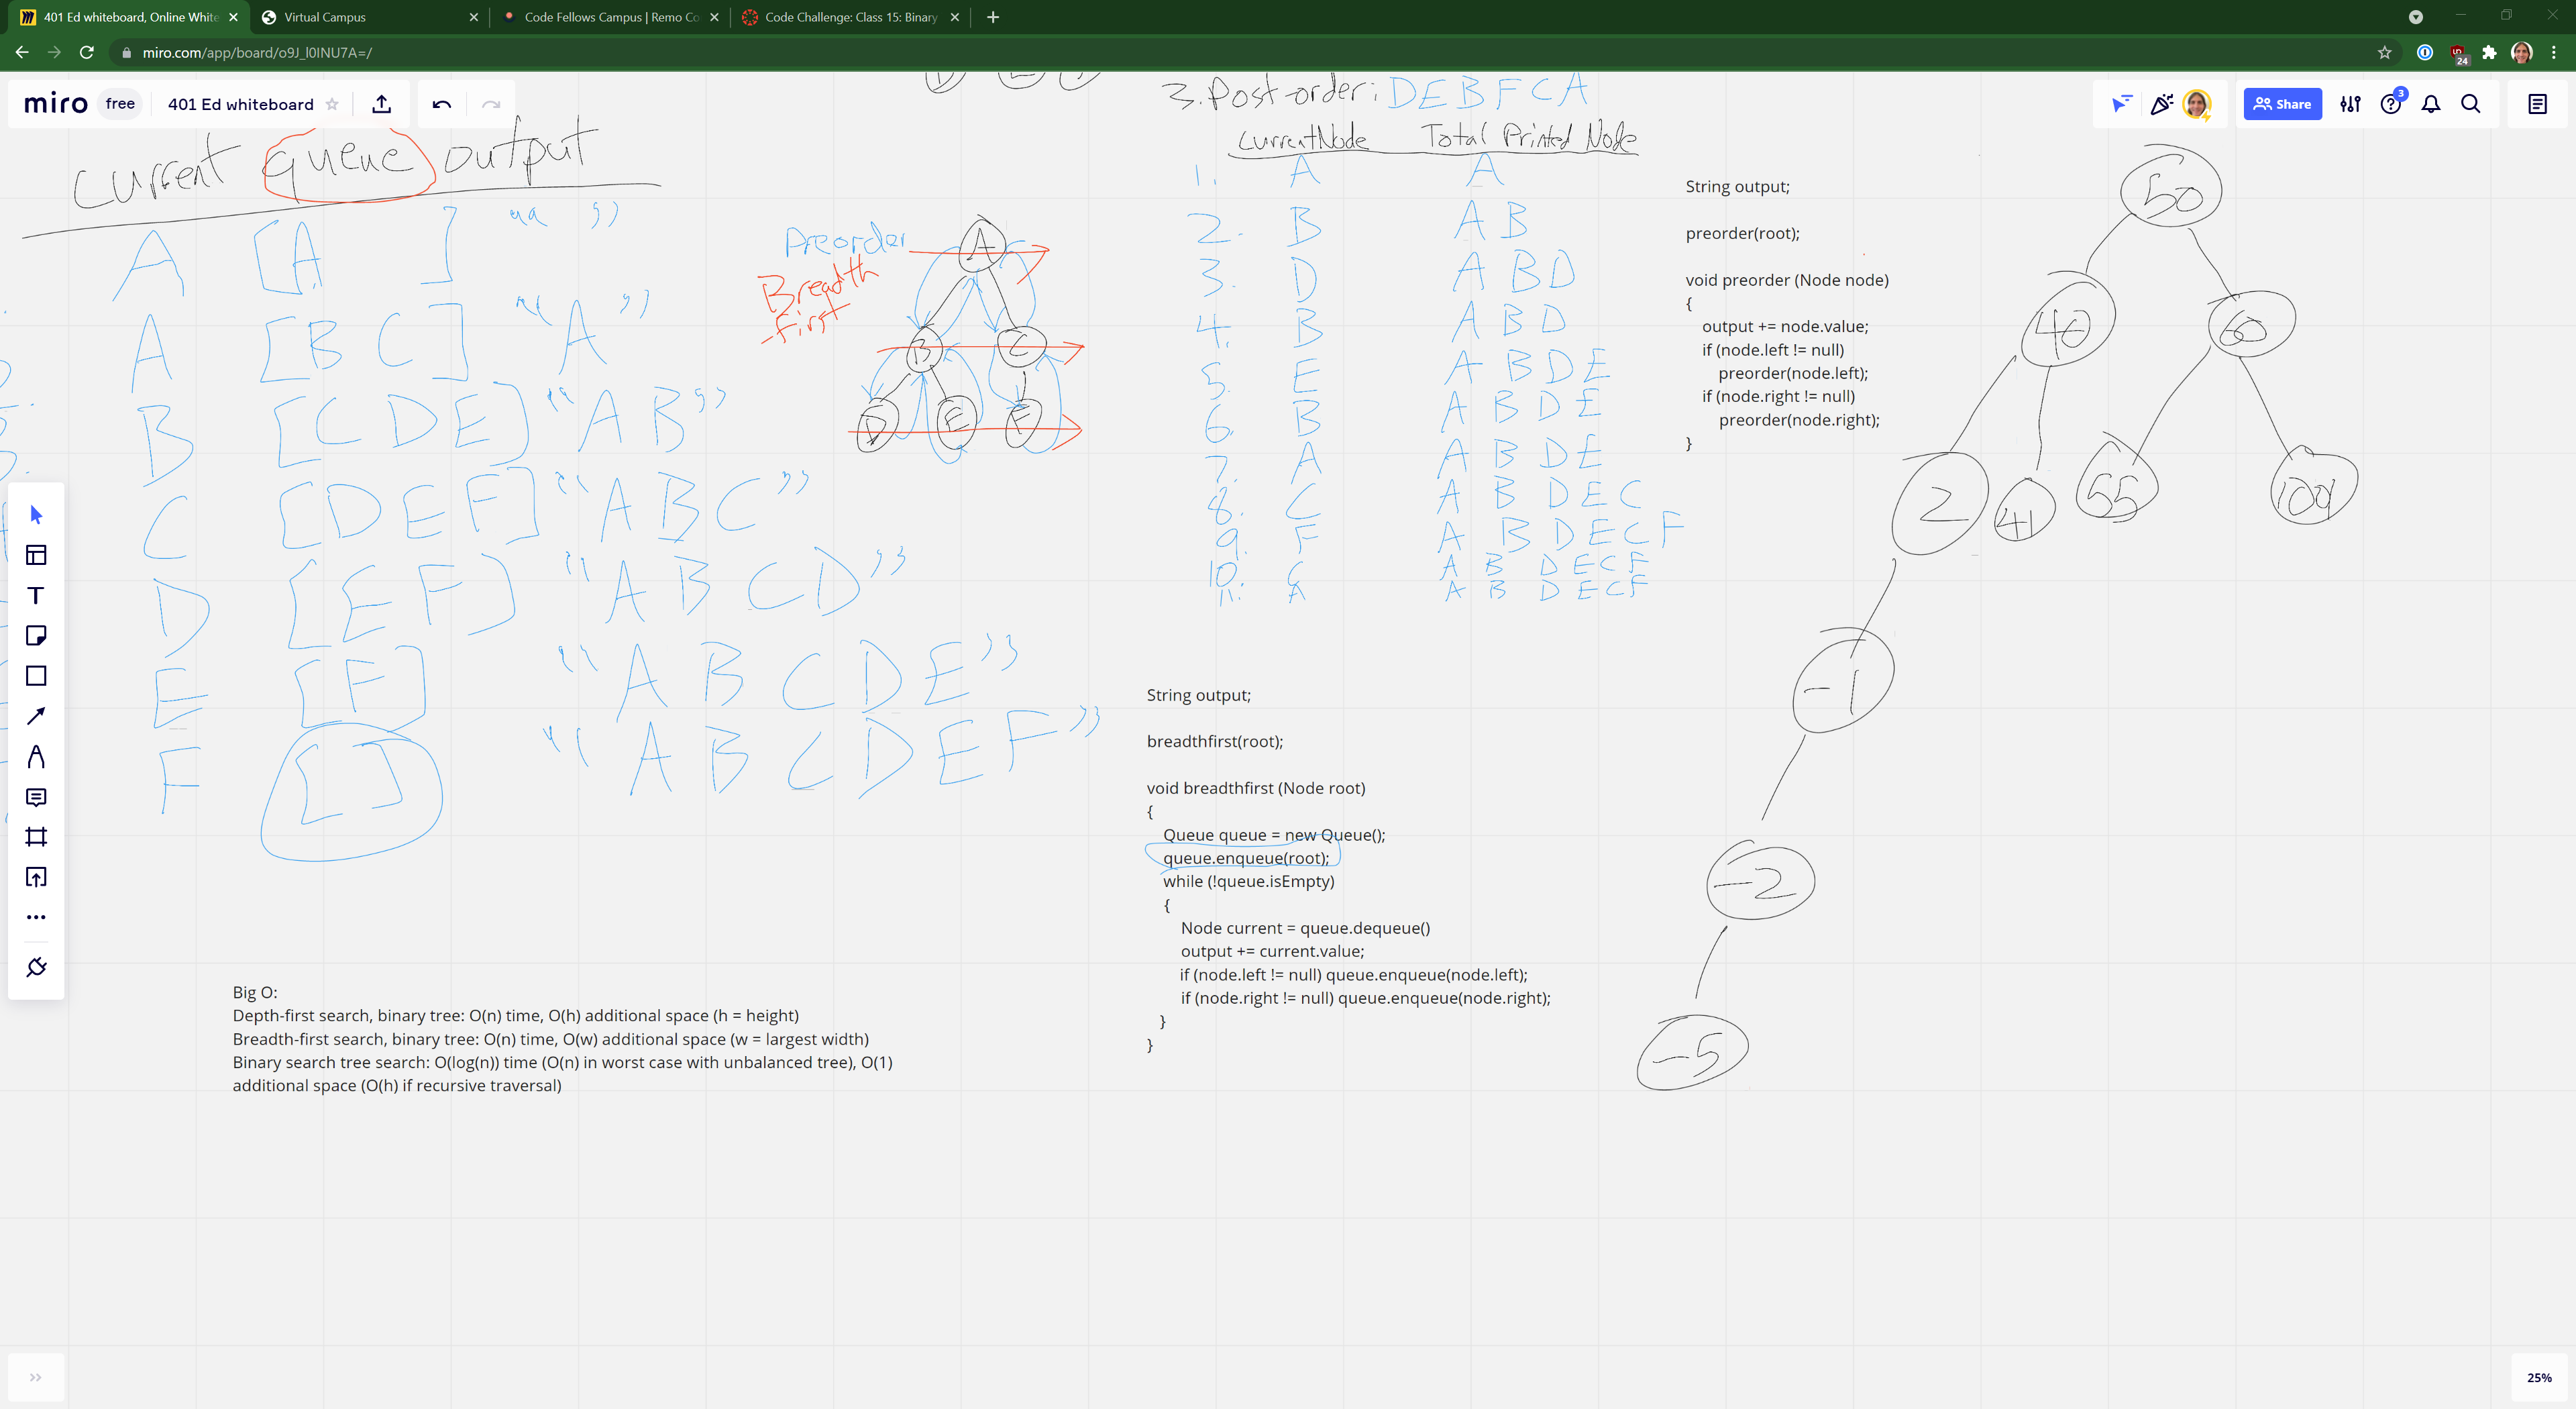 401 Ed whiteboard, Online White
Virtual Campus
Code Fellows Campus | Remo Co
Code Challenge: Class 15: Binary
miro.com/app/board/o9J_l0INU7A=/
24
miro
free
401 Ed whiteboard
3
Share
3. Post-order: D E B F C A
current queue output
A [A ] “ ”
A [B C] “A”
B [C D E] “A B”
C [D E F] “A B C”
D [E F] “A B C D”
E [F] “A B C D E”
F [ ] “A B C D E F”
Preorder
Breadth
-first
A
B C
D E F
CurrentNode Total Printed Node
1. A A
2. B A B
3. D A B D
4. B A B D
5. E A B D E
6. B A B D E
7. A A B D E
8. C A B D E C
9. F A B D E C F
10. C A B D E C F
11. A A B D E C F
String output;
preorder(root);
void preorder (Node node)
{
output += node.value;
if (node.left != null)
preorder(node.left);
if (node.right != null)
preorder(node.right);
}
50
40 60
2 41 55
-1
-2
-5
String output;
breadthfirst(root);
void breadthfirst (Node root)
{
Queue queue = new Queue();
queue.enqueue(root);
while (!queue.isEmpty)
{
Node current = queue.dequeue()
output += current.value;
if (node.left != null) queue.enqueue(node.left);
if (node.right != null) queue.enqueue(node.right);
}
}
Big O:
Depth-first search, binary tree: O(n) time, O(h) additional space (h = height)
Breadth-first search, binary tree: O(n) time, O(w) additional space (w = largest width)
Binary search tree search: O(log(n)) time (O(n) in worst case with unbalanced tree), O(1)
additional space (O(h) if recursive traversal)
25%